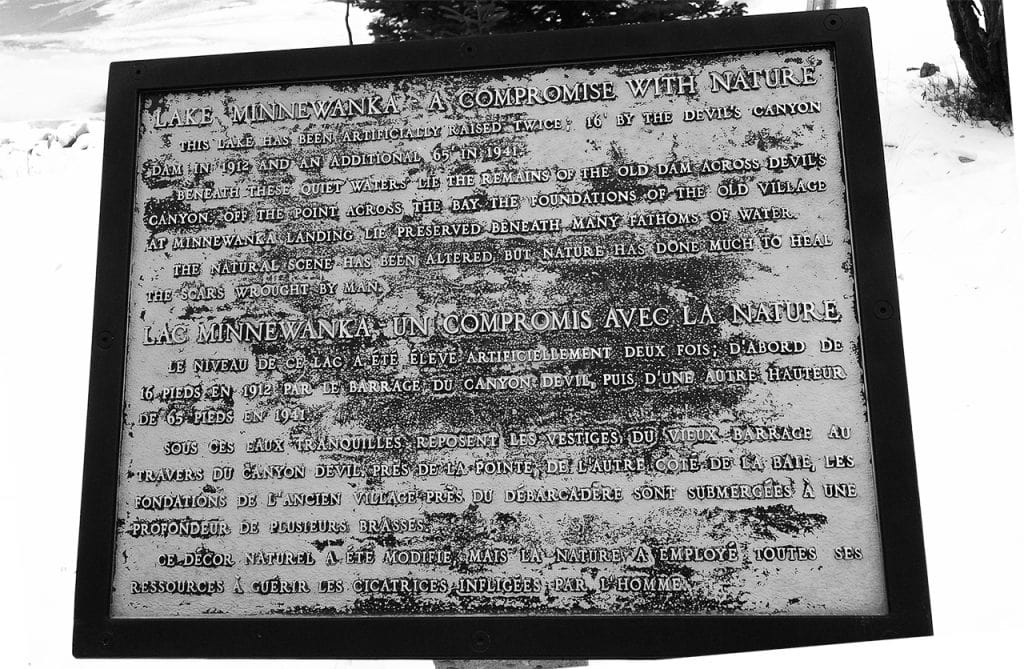 LAKE MINNEWANKA: A COMPROMISE WITH NATURE
THIS LAKE HAS BEEN ARTIFICIALLY RAISED TWICE; 16' BY THE DEVIL'S CANYON
DAM IN 1912 AND AN ADDITIONAL 65' IN 1941.
BENEATH THESE QUIET WATERS LIE THE REMAINS OF THE OLD DAM ACROSS DEVIL'S
CANYON. OFF THE POINT ACROSS THE BAY THE FOUNDATIONS OF THE OLD VILLAGE
AT MINNEWANKA LANDING LIE PRESERVED BENEATH MANY FATHOMS OF WATER.
THE NATURAL SCENE HAS BEEN ALTERED, BUT NATURE HAS DONE MUCH TO HEAL
THE SCARS WROUGHT BY MAN.
LAC MINNEWANKA, UN COMPROMIS AVEC LA NATURE
LE NIVEAU DE CE LAC A ÉTÉ ÉLEVÉ ARTIFICIELLEMENT DEUX FOIS; D'ABORD DE
16 PIEDS EN 1912 PAR LE BARRAGE DU CANYON DEVIL, PUIS D'UNE AUTRE HAUTEUR
DE 65 PIEDS EN 1941.
SOUS CES EAUX TRANQUILLES REPOSENT LES VESTIGES DU VIEUX BARRAGE AU
TRAVERS DU CANYON DEVIL. PRÈS DE LA POINTE, DE L'AUTRE CÔTÉ DE LA BAIE, LES
FONDATIONS DE L'ANCIEN VILLAGE PRÈS DU DÉBARCADÈRE SONT SUBMERGÉES À UNE
PROFONDEUR DE PLUSIEURS BRASSES.
CE DÉCOR NATUREL A ÉTÉ MODIFIÉ, MAIS LA NATURE A EMPLOYÉ TOUTES SES
RESSOURCES À GUÉRIR LES CICATRICES INFLIGÉES PAR L'HOMME.